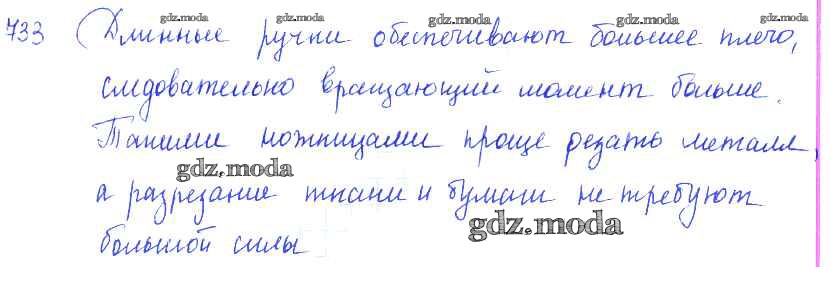 733 Длинные ручки обеспечивают большее плечо,
следовательно вращающий момент больше.
Такими ножницами проще резать металл,
а разрезание ткани и бумаги не требуют
большой силы
gdz.moda gdz.moda gdz.moda gdz.moda gdz.moda
gdz.moda
gdz.moda